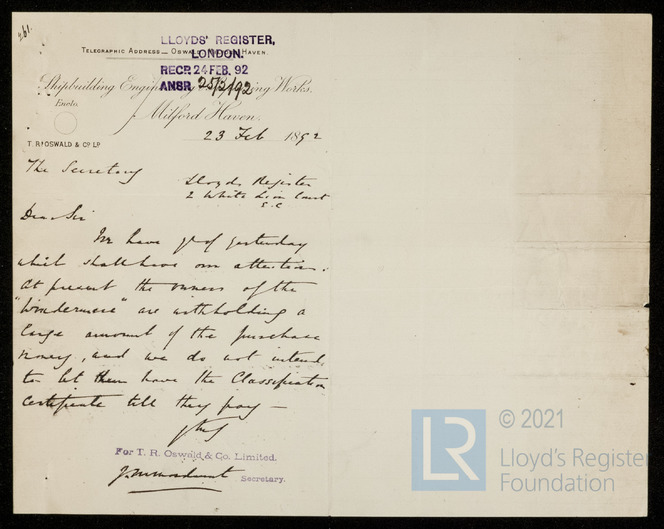 261.
LLOYDS' REGISTER,
LONDON.
RECD 24 FEB. 92
ANSR 25/2/92
TELEGRAPHIC ADDRESS — OSWALD, MILFORD HAVEN.
Shipbuilding Engineering Works.
Enclo.
Milford Haven.
23 Feb 1892
T. R. OSWALD & CO. LD
The Secretary
Lloyds Register
2 White Lion Court
E.C
Dear Sir
We have yrs of yesterday
which shall have our attention.
At present the owners of the
"Windermere" are withholding a
large amount of the purchase
money, and we do not intend
to let them have the Classification
Certificate till they pay —
For T. R. Oswald & Co. Limited.
Secretary.
LR
© 2021
Lloyd's Register
Foundation